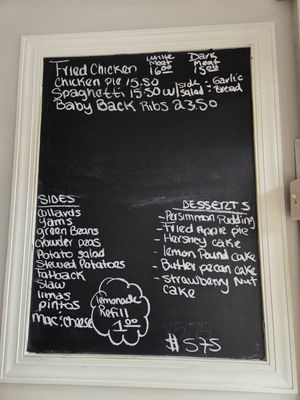 White Meat Dark Meat
Fried Chicken 16.00 15.00
Chicken Pie 15.50
Spaghetti 15.50 w/ side salad & Garlic Bread
Baby Back Ribs 23.50
SIDES
Collards
yams
green Beans
Crowder peas
Potato salad
Stewed Potatoes
Fatback
Slaw
limas
pintos
mac & cheese
lemonade
Refill
1.00
DESSERTS
- Persimmon Pudding
- Fried Apple pie
- Hershey cake
- lemon Pound cake
- Butter pecan cake
- Strawberry Nut
cake
$ 5.75